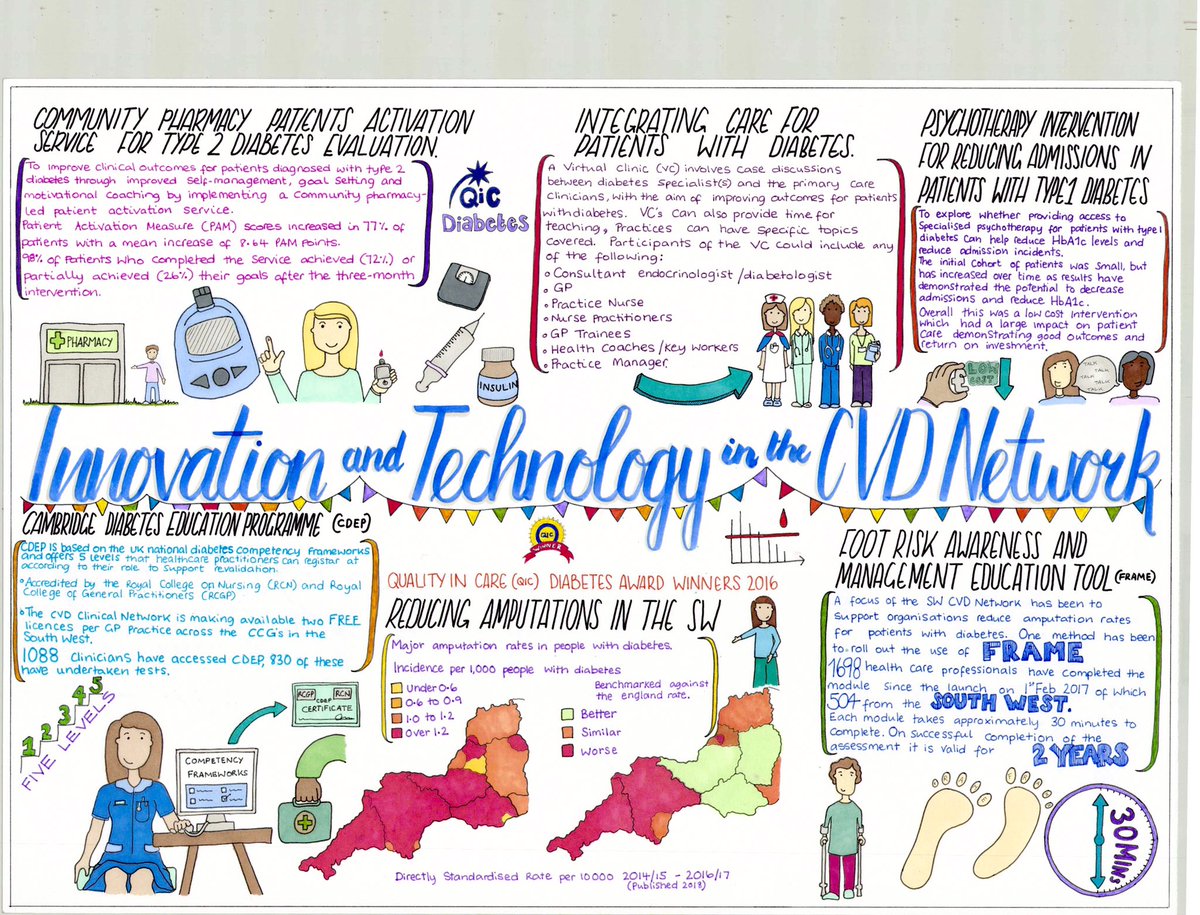 COMMUNITY PHARMACY PATIENTS ACTIVATION
SERVICE FOR TYPE 2 DIABETES EVALUATION.
To improve clinical outcomes for patients diagnosed with type 2
diabetes through improved self-management, goal setting and
motivational coaching by implementing a Community pharmacy-
led patient activation service.
Patient Activation Measure (PAM) scores increased in 77% of
patients with a mean increase of 8.64 PAM Points.
98% of Patients who completed the Service achieved (72%) or
partially achieved (26%) their goals after the three-month
intervention.
QiC
Diabetes
PHARMACY
INSULIN
INTEGRATING CARE FOR
PATIENTS WITH DIABETES.
A Virtual Clinic (VC) involves case discussions
between diabetes specialist(s) and the primary care
clinicians, with the aim of improving outcomes for patients
with diabetes. VC's can also provide time for
teaching, Practices can have specific topics
covered. Participants of the VC could include any
of the following:
• Consultant endocrinologist /diabetologist
• GP
• Practice Nurse
• Nurse Practitioners
• GP Trainees
• Health Coaches /key workers
• Practice Manager.
PSYCHOTHERAPY INTERVENTION
FOR REDUCING ADMISSIONS IN
PATIENTS WITH TYPE 1 DIABETES
To explore whether providing access to
Specialised psychotherapy for patients with type 1
diabetes can help reduce HbA1c levels and
reduce admission incidents.
The initial Cohort of patients was small, but
has increased over time as results have
demonstrated the potential to decrease
admissions and reduce HbA1c.
Overall this was a low cost intervention
which had a large impact on patient
care demonstrating good outcomes and
return on investment.
LOW
COST
TALK
TALK
TALK
TALK
TALK
Innovation and Technology in the CVD Network
CAMBRIDGE DIABETES EDUCATION PROGRAMME (CDEP)
CDEP is based on the UK national diabetes competency frameworks
and offers 5 levels that healthcare practitioners can registar at
according to their role to support revalidation.
• Accredited by the Royal College on Nursing (RCN) and Royal
College of General Practitioners (RCGP)
• The CVD Clinical Network is making available two FREE
licences per GP Practice across the CCG's in the
South West.
1088 Clinicians have accessed CDEP, 830 of these
have undertaken tests.
1 2 3 4 5
FIVE LEVELS
COMPETENCY
FRAMEWORKS
RCGP RCN
CDEP
CERTIFICATE
QiC
WINNER
QUALITY IN CARE (QiC) DIABETES AWARD WINNERS 2016
REDUCING AMPUTATIONS IN THE SW
Major amputation rates in people with diabetes.
Incidence per 1,000 people with diabetes
Under 0.6
0.6 to 0.9
1.0 to 1.2
Over 1.2
Benchmarked against
the england rate.
Better
Similar
Worse
Directly Standardised Rate per 10000 2014/15 - 2016/17
(Published 2018)
FOOT RISK AWARENESS AND
MANAGEMENT EDUCATION TOOL (FRAME)
A focus of the SW CVD Network has been to
Support organisations reduce amputation rates
for patients with diabetes. One method has been
to roll out the use of FRAME
1698 health care professionals have completed the
module since the launch on 1st Feb 2017 of which
504 from the SOUTH WEST.
Each module takes approximately 30 minutes to
complete. On successful completion of the
assessment it is valid for 2 YEARS
30 MINS